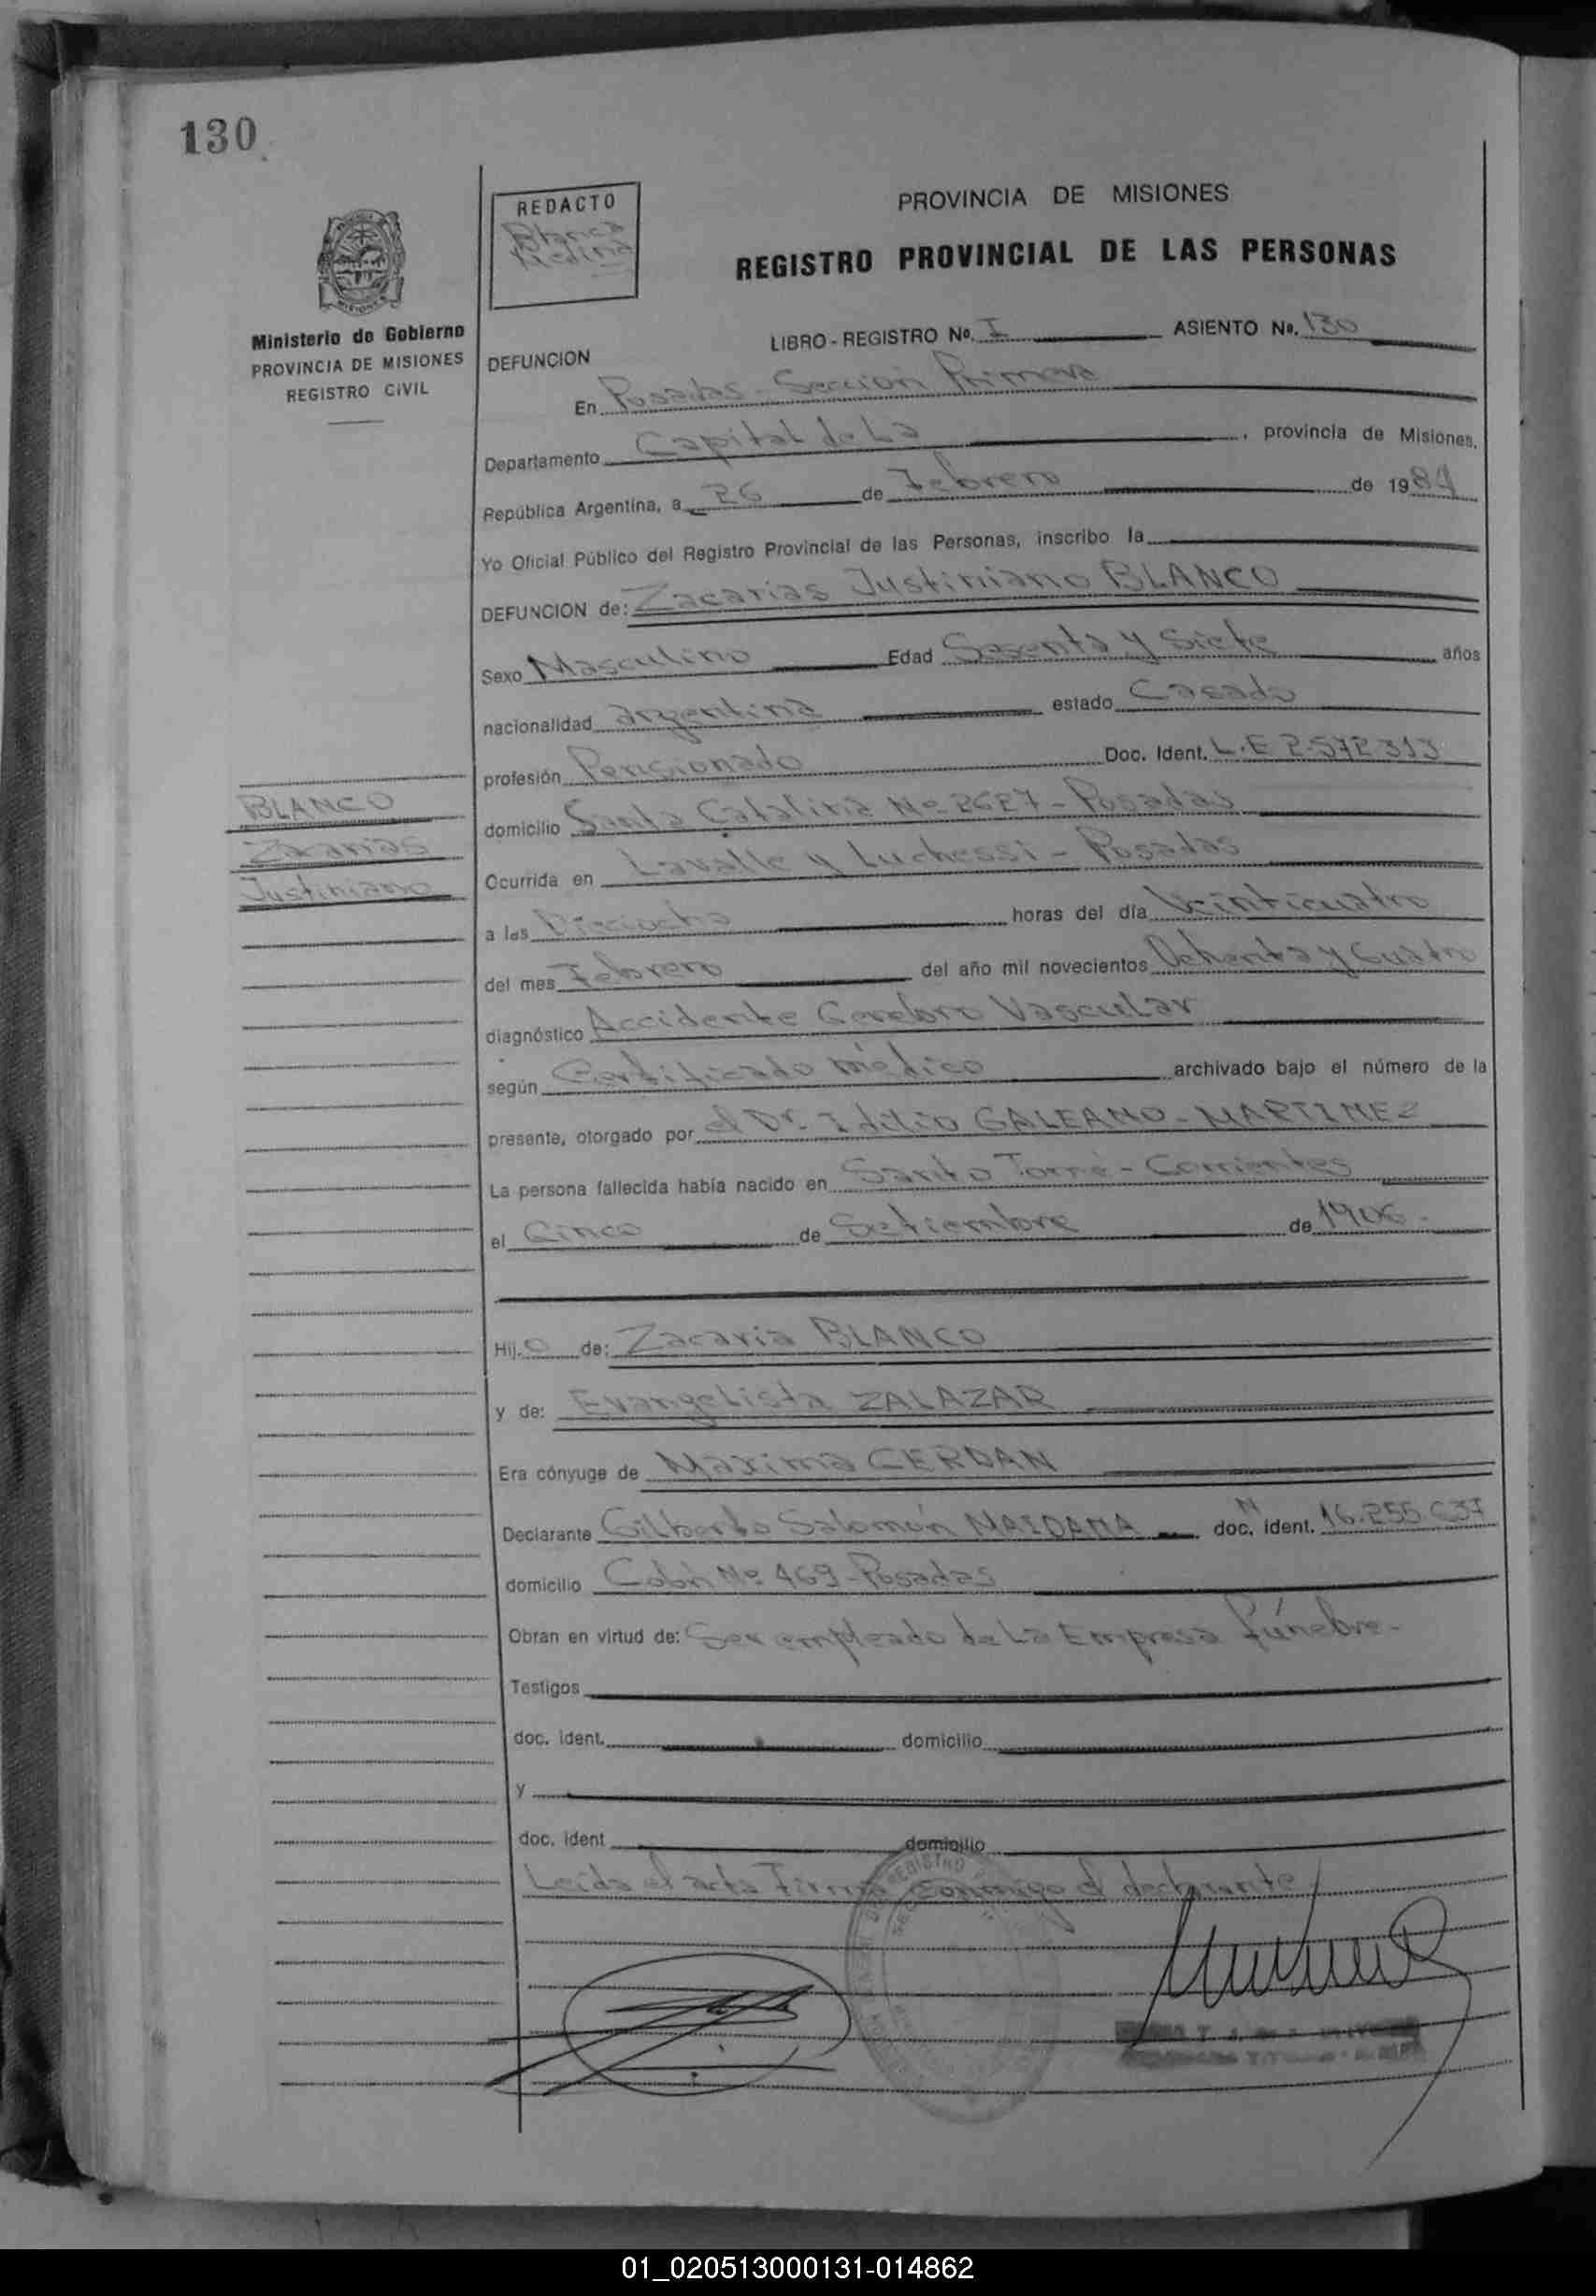 130
REDACTO
Blanca
Medina
PROVINCIA DE MISIONES
REGISTRO PROVINCIAL DE LAS PERSONAS
Ministerio de Gobierno
PROVINCIA DE MISIONES
REGISTRO CIVIL
LIBRO - REGISTRO No. I ASIENTO No. 130
DEFUNCION
En Posadas - Sección Primera
Departamento Capital de La, provincia de Misiones,
República Argentina, a 26 de Febrero de 1984
Yo Oficial Público del Registro Provincial de las Personas, inscribo la
DEFUNCION de: Zacarias Justiniano BLANCO
Sexo Masculino Edad Sesenta y Siete años
nacionalidad argentina estado Casado
profesión Pensionado Doc. Ident. L.E 2.572.313
BLANCO
Zacarias
Justiniano
domicilio Santa Catalina Nº 2627 - Posadas
Ocurrida en Lavalle y Luchessi - Posadas
a las Dieciocho horas del día Veinticuatro
del mes Febrero del año mil novecientos Ochenta y Cuatro
diagnóstico Accidente Cerebro Vascular
según Certificado médico archivado bajo el número de la
presente, otorgado por el Dr. Idilio GALEANO - MARTINEZ
La persona fallecida había nacido en Santo Tomé - Corrientes
el Cinco de Setiembre de 1906.
Hij.o de: Zacaria BLANCO
y de: Evangelista ZALAZAR
Era cónyuge de Maxima CERDAN
Declarante Gilberto Salomón MAIDANA doc. N ident. 16.255.637
domicilio Colón Nº 469 - Posadas
Obran en virtud de: Ser empleado de La Empresa fúnebre.-
Testigos
doc. ident. domicilio
y
doc. ident domicilio
Leída el acta Firma conmigo el declarante
REGISTRO
01_020513000131-014862